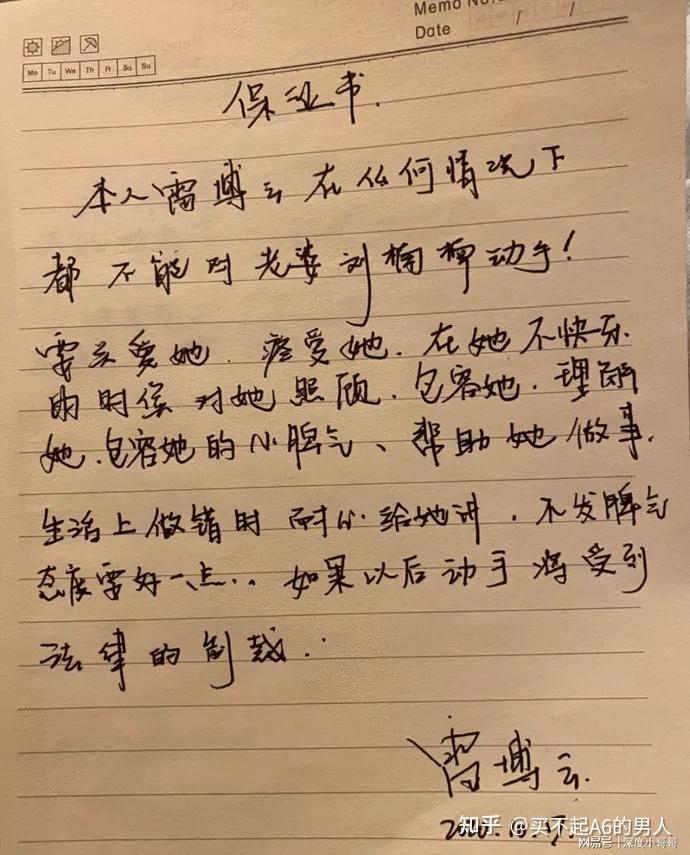 Memo No.
Date / /
Mo Tu We Th Fr Sa Su
保证书.
本人雷博云在任何情况下
都不能对老婆刘楠楠动手!
要去爱她.疼爱她.在她不快乐
的时候对她照顾.包容她.理解
她.包容她的小脾气、帮助她做事.
生活上做错时耐心给她讲.不发脾气
态度要好一点... 如果以后动手将受到
法律的制裁..
雷博云.
知乎 @买不起A6的男人
网易号 | 深度小哥哥